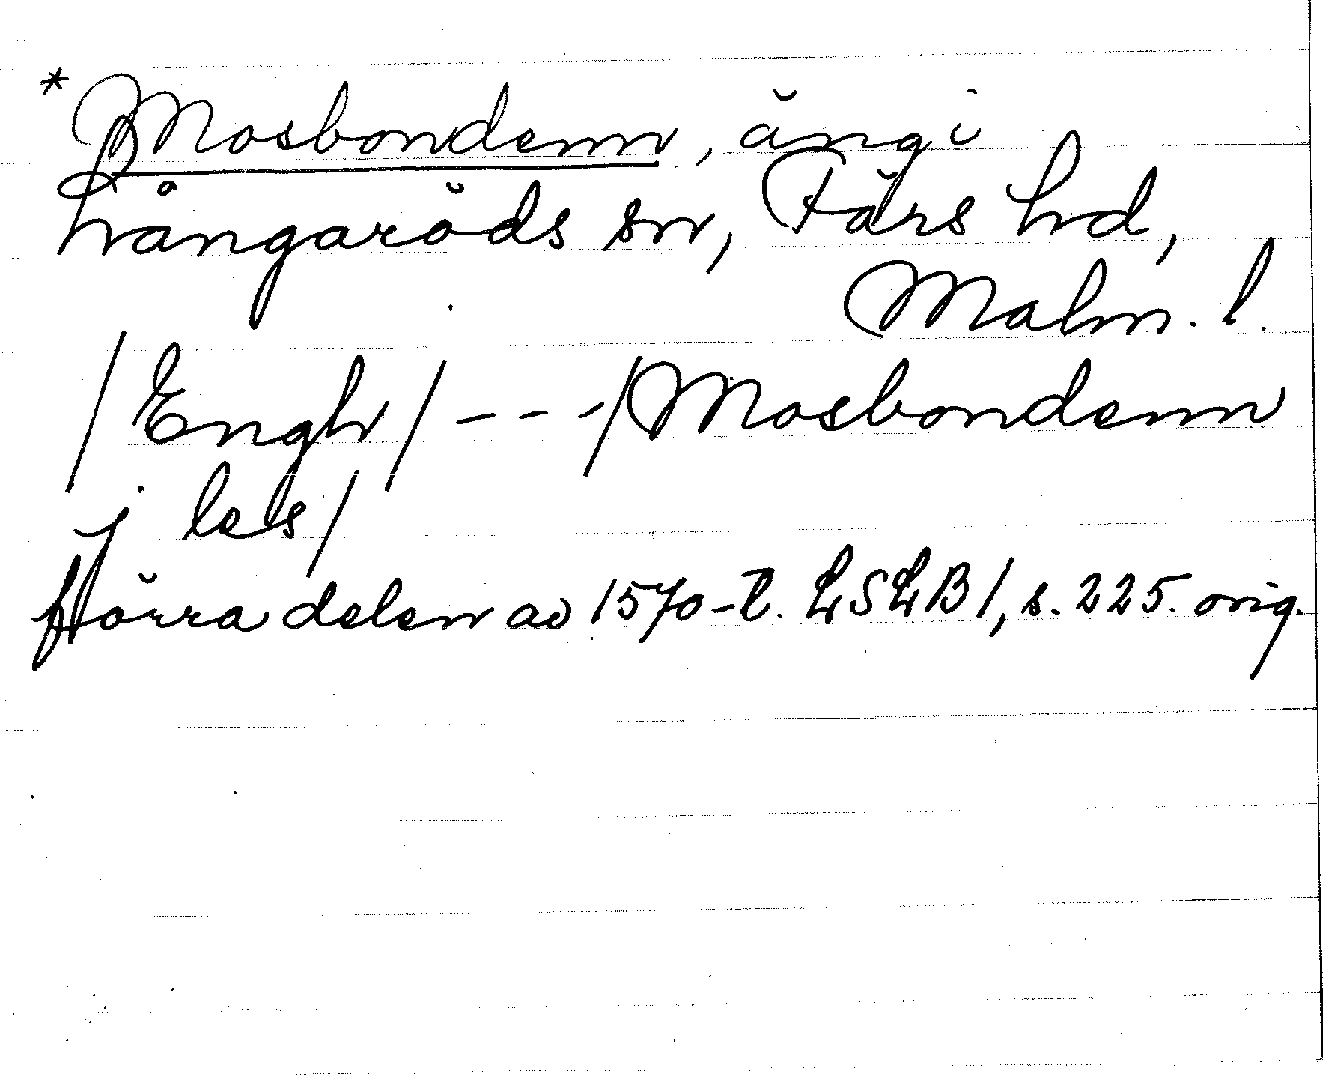 * Mosbondenn, äng i
Långaröds sn, Färs hd,
Malm. l.
/Engh/ - - - /Mosbondenn
j les/
förra delen av 1570-t. LSLB 1, s. 225. orig.